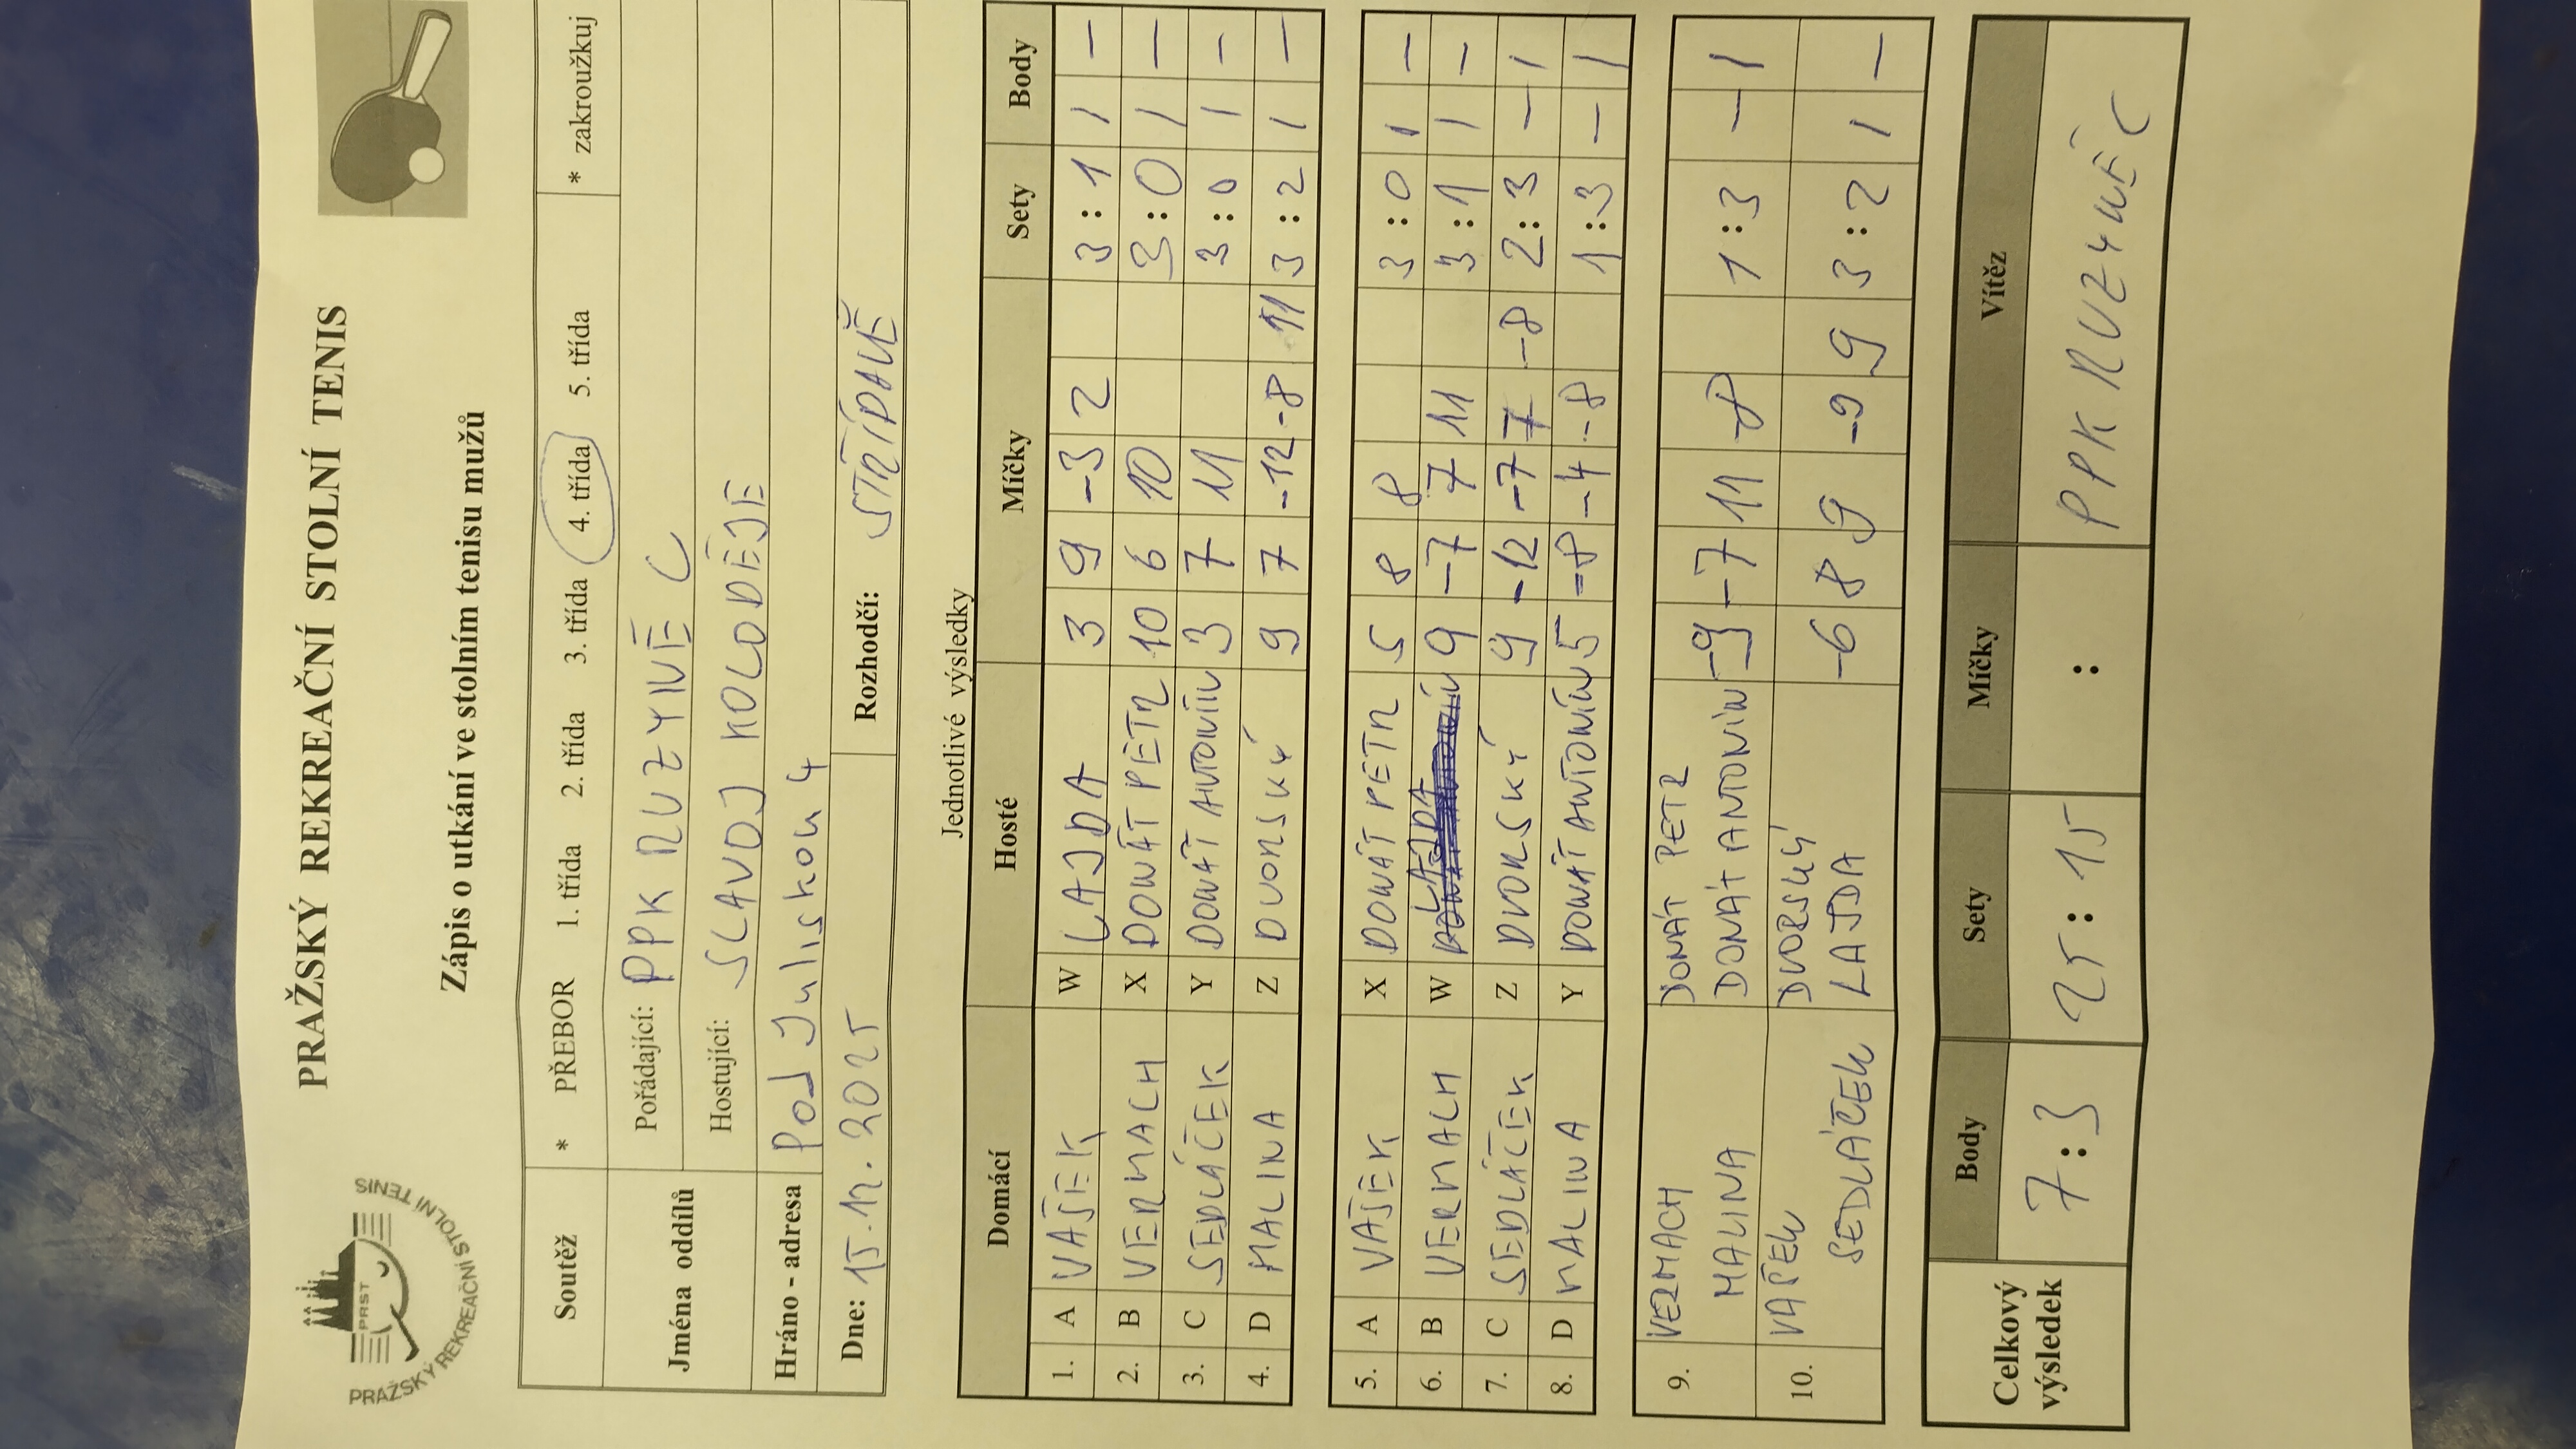 PRAŽSKÝ REKREAČNÍ STOLNÍ TENIS
PRST
PRAŽSKÝ REKREAČNÍ STOLNÍ TENIS
Zápis o utkání ve stolním tenisu mužů
Soutěž * PŘEBOR 1. třída 2. třída 3. třída 4. třída 5. třída * zakroužkuj
Jména oddílů Pořádající: PPK RUZYNĚ C
Hostující: SLAVOJ KOLODĚJE
Hráno - adresa Pod Juliskou 4
Dne: 15.12.2025 Rozhodčí: STŘÍDAVĚ
Jednotlivé výsledky
Domácí Hosté Míčky Sety Body
1. A VAŠEK W LAJDA 3 9 -3 2 3:1 1 –
2. B VERMACH X DONÁT PETR 10 6 10 3:0 1 –
3. C SEDLÁČEK Y DONÁT ANTONÍN 3 7 11 3:0 1 –
4. D MALINA Z DVORSKÝ 9 7 -12 -8 11 3:2 1 –
5. A VAŠEK X DONÁT PETR 5 8 8 3:0 1 –
6. B VERMACH W LAJDA 9 -7 7 11 3:1 1 –
7. C SEDLÁČEK Z DVORSKÝ 9 -12 -7 7 -8 2:3 – 1
8. D MALINA Y DONÁT ANTONÍN 5 -8 -4 -8 1:3 – 1
9. VERMACH DONÁT PETR
MALINA DONÁT ANTONÍN -9 -7 11 -8 1:3 – 1
10. VAŠEK DVORSKÝ
SEDLÁČEK LAJDA -6 8 9 -9 9 3:2 1 –
Celkový výsledek Body Sety Míčky Vítěz
7:3 25:15 : PPK RUZYNĚ C